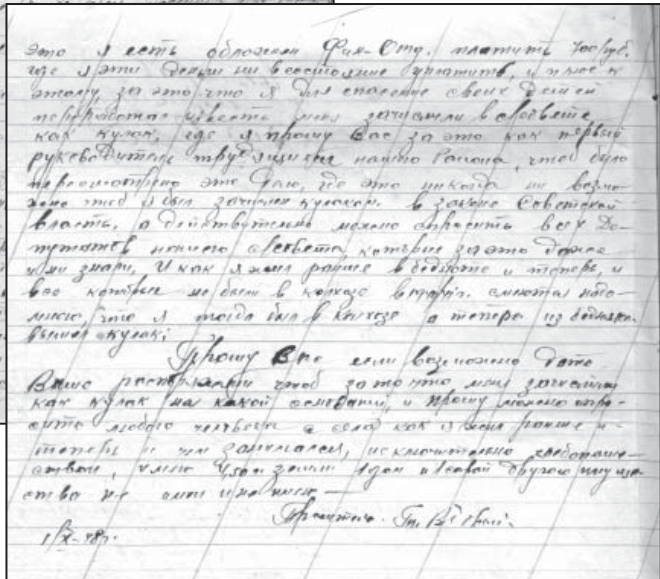 это я есть обложен Фин-Отд. платить 700 руб.
где я эти деньги ни всостояние уплатить, и плюс к
этому, за это что я для спасение своих детей
переработал известь меня зачислили в с/совете
как кулак, где я прошу Вас за это как первый
руководитель трудящихся нашго Района, чтоб было
пересмотрено это дело, где это никогда ни возмо-
жно чтоб я был зачислен кулаком. в законе Советской
власть, а действительно можно спросить всех Де-
путатов нашего с/совета, которые за это даже
и ни знали. И как я жил раньше в бедноте и теперь, и
все которые не были в колхозе смеются надо-
мною, что я тогда был в колхозе а теперь из бедняка
вышел кулак;
Прошу Вас если возможно дать
Ваше распоряжении чтоб за то что меня зачислили
как кулак на какой основании, и прошу можно спро-
сить любого человека с села как я жил раньше и-
теперь и чем занимался, исключительно хлебопаше-
ством, имею земли 1 дом и сарай другого имуще-
ства не имел и не имею —
Проситель.
1/X-48г.